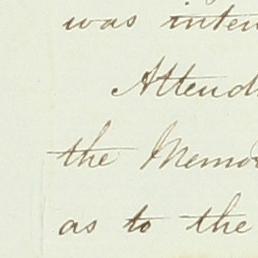 was inten
Attend
the Memo
as to the